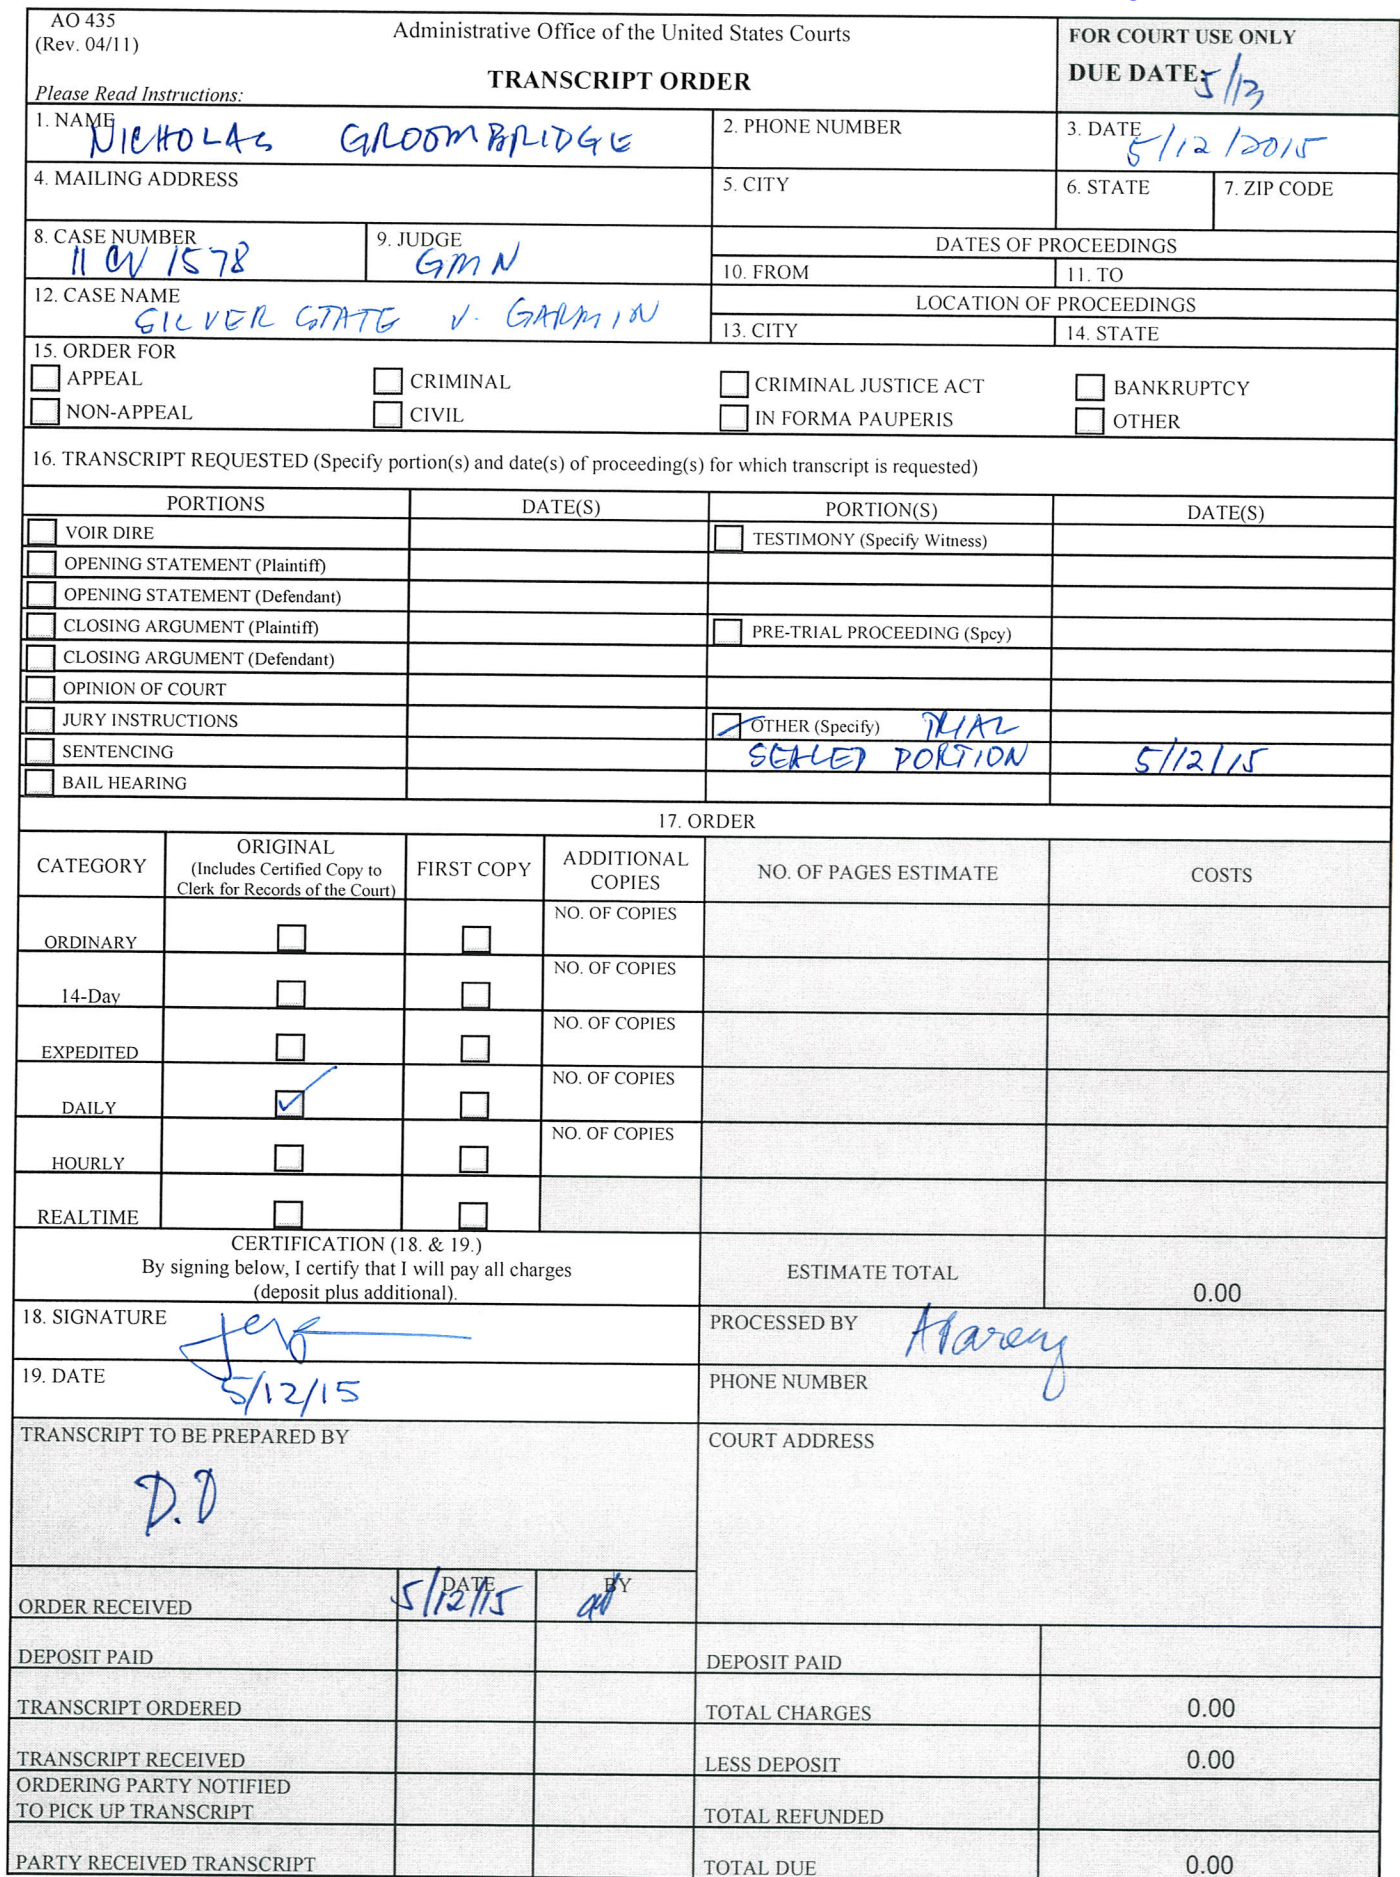 AO 435
(Rev. 04/11)
Administrative Office of the United States Courts
FOR COURT USE ONLY
TRANSCRIPT ORDER
DUE DATE: 5/13
Please Read Instructions:
1. NAME NICHOLAS GROOMBRIDGE
2. PHONE NUMBER
3. DATE 5/12/2015
4. MAILING ADDRESS
5. CITY
6. STATE
7. ZIP CODE
8. CASE NUMBER 11 CV 1578
9. JUDGE GMN
DATES OF PROCEEDINGS
10. FROM
11. TO
12. CASE NAME SILVER STATE V. GARMIN
LOCATION OF PROCEEDINGS
13. CITY
14. STATE
15. ORDER FOR
APPEAL CRIMINAL CRIMINAL JUSTICE ACT BANKRUPTCY
NON-APPEAL CIVIL IN FORMA PAUPERIS OTHER
16. TRANSCRIPT REQUESTED (Specify portion(s) and date(s) of proceeding(s) for which transcript is requested)
PORTIONS DATE(S) PORTION(S) DATE(S)
VOIR DIRE TESTIMONY (Specify Witness)
OPENING STATEMENT (Plaintiff)
OPENING STATEMENT (Defendant)
CLOSING ARGUMENT (Plaintiff) PRE-TRIAL PROCEEDING (Spcy)
CLOSING ARGUMENT (Defendant)
OPINION OF COURT
JURY INSTRUCTIONS OTHER (Specify) TRIAL
SENTENCING SEALED PORTION 5/12/15
BAIL HEARING
17. ORDER
CATEGORY
ORIGINAL
(Includes Certified Copy to
Clerk for Records of the Court)
FIRST COPY
ADDITIONAL
COPIES
NO. OF PAGES ESTIMATE
COSTS
ORDINARY NO. OF COPIES
14-Day NO. OF COPIES
EXPEDITED NO. OF COPIES
DAILY NO. OF COPIES
HOURLY NO. OF COPIES
REALTIME
CERTIFICATION (18. & 19.)
By signing below, I certify that I will pay all charges
(deposit plus additional).
ESTIMATE TOTAL 0.00
18. SIGNATURE
PROCESSED BY
19. DATE 5/12/15
PHONE NUMBER
TRANSCRIPT TO BE PREPARED BY
D.D
COURT ADDRESS
DATE BY
ORDER RECEIVED 5/12/15
DEPOSIT PAID DEPOSIT PAID
TRANSCRIPT ORDERED TOTAL CHARGES 0.00
TRANSCRIPT RECEIVED LESS DEPOSIT 0.00
ORDERING PARTY NOTIFIED
TO PICK UP TRANSCRIPT TOTAL REFUNDED
PARTY RECEIVED TRANSCRIPT TOTAL DUE 0.00